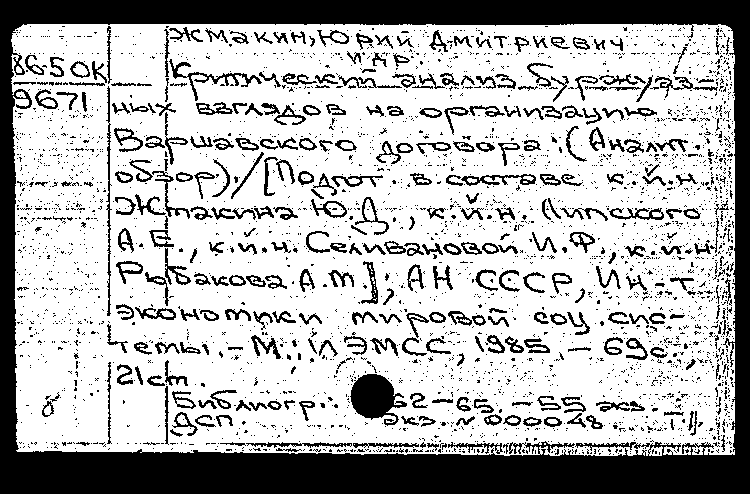 Жмакин, Юрий Дмитриевич
и др
86-5 ОК Критический анализ буржуаз-
9671 ных взглядов на организацию
Варшавского договора: (Аналит.
обзор). / [Подгот. в составе к.й.н.
Жмакина Ю.Д., к.й.н. Липского
А.Е., к.й.н. Селивановой И.Ф., к.й.н
Рыбакова А.М.]; АН СССР, Ин-т
экономики мировой соц. сис-
темы. - М.: ИЭМСС, 1985. - 69с.;
21см.
Библиогр.: 62-65. - 55 экз.
ДСП. Экз. № 000048.